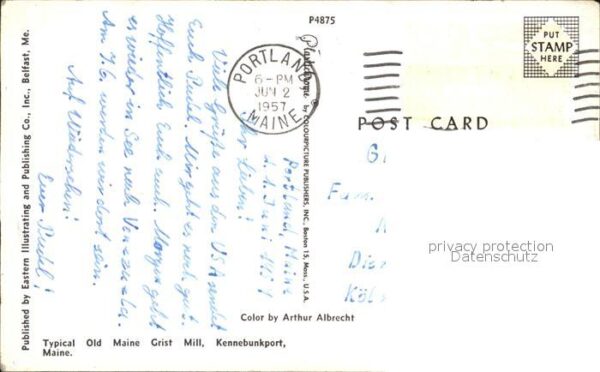 P4875
Plastichrome by COLOURPICTURE PUBLISHERS, INC., Boston 15, Mass., U.S.A.
PUT
STAMP
HERE
PORTLAND
6-PM
JUN 2
1957
MAINE
POST CARD
Published by Eastern Illustrating and Publishing Co., Inc., Belfast, Me.
Portland, Maine
d. 1. Juni
Ihr Lieben!
Viele Grüße aus den USA sendet
Euch Pudel. Mir geht es noch gut.
Hoffentlich Euch auch. Morgen geht
es wieder in See nach Venezuela.
Am 7.6. werden wir dort sein.
Auf Wiedersehen!
Euer Pudel!
G
Fam.
Köl
privacy protection
Datenschutz
Color by Arthur Albrecht
Typical Old Maine Grist Mill, Kennebunkport,
Maine.